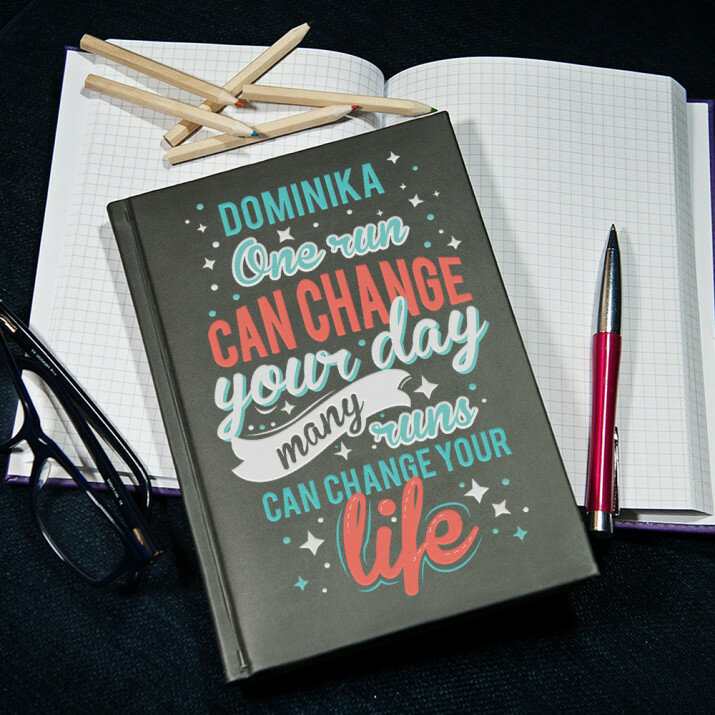 DOMINIKA
One run
CAN CHANGE
your day
many
runs
CAN CHANGE YOUR
life